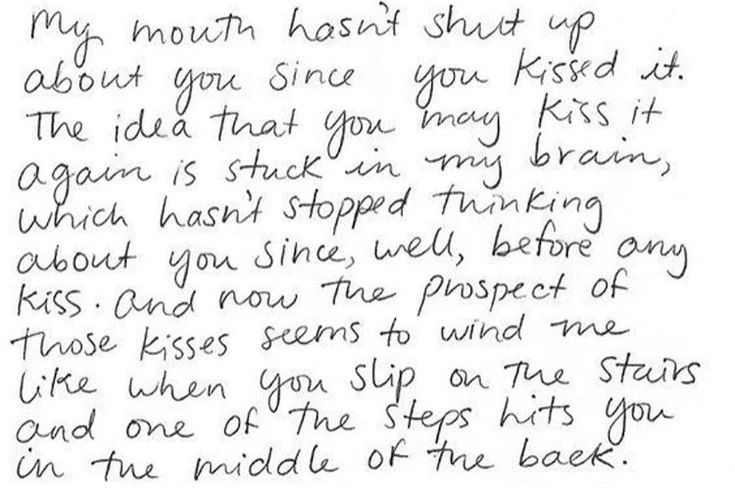 My mouth hasn't shut up
about you since you kissed it.
The idea that you may kiss it
again is stuck in my brain,
which hasn't stopped thinking
about you since, well, before any
kiss. And now the prospect of
those kisses seems to wind me
like when you slip on the stairs
and one of the steps hits you
in the middle of the back.